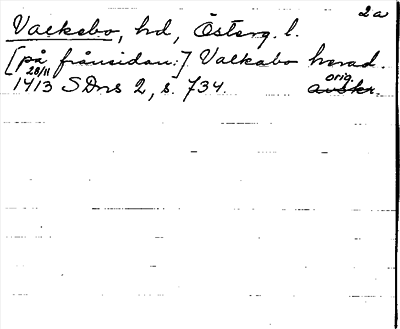 2a
Valkebo, hd, Österg. l.
[på frånsidan:] Valkabo herad.
28/11 orig.
1413 SDns 2, s. 734. avskr.